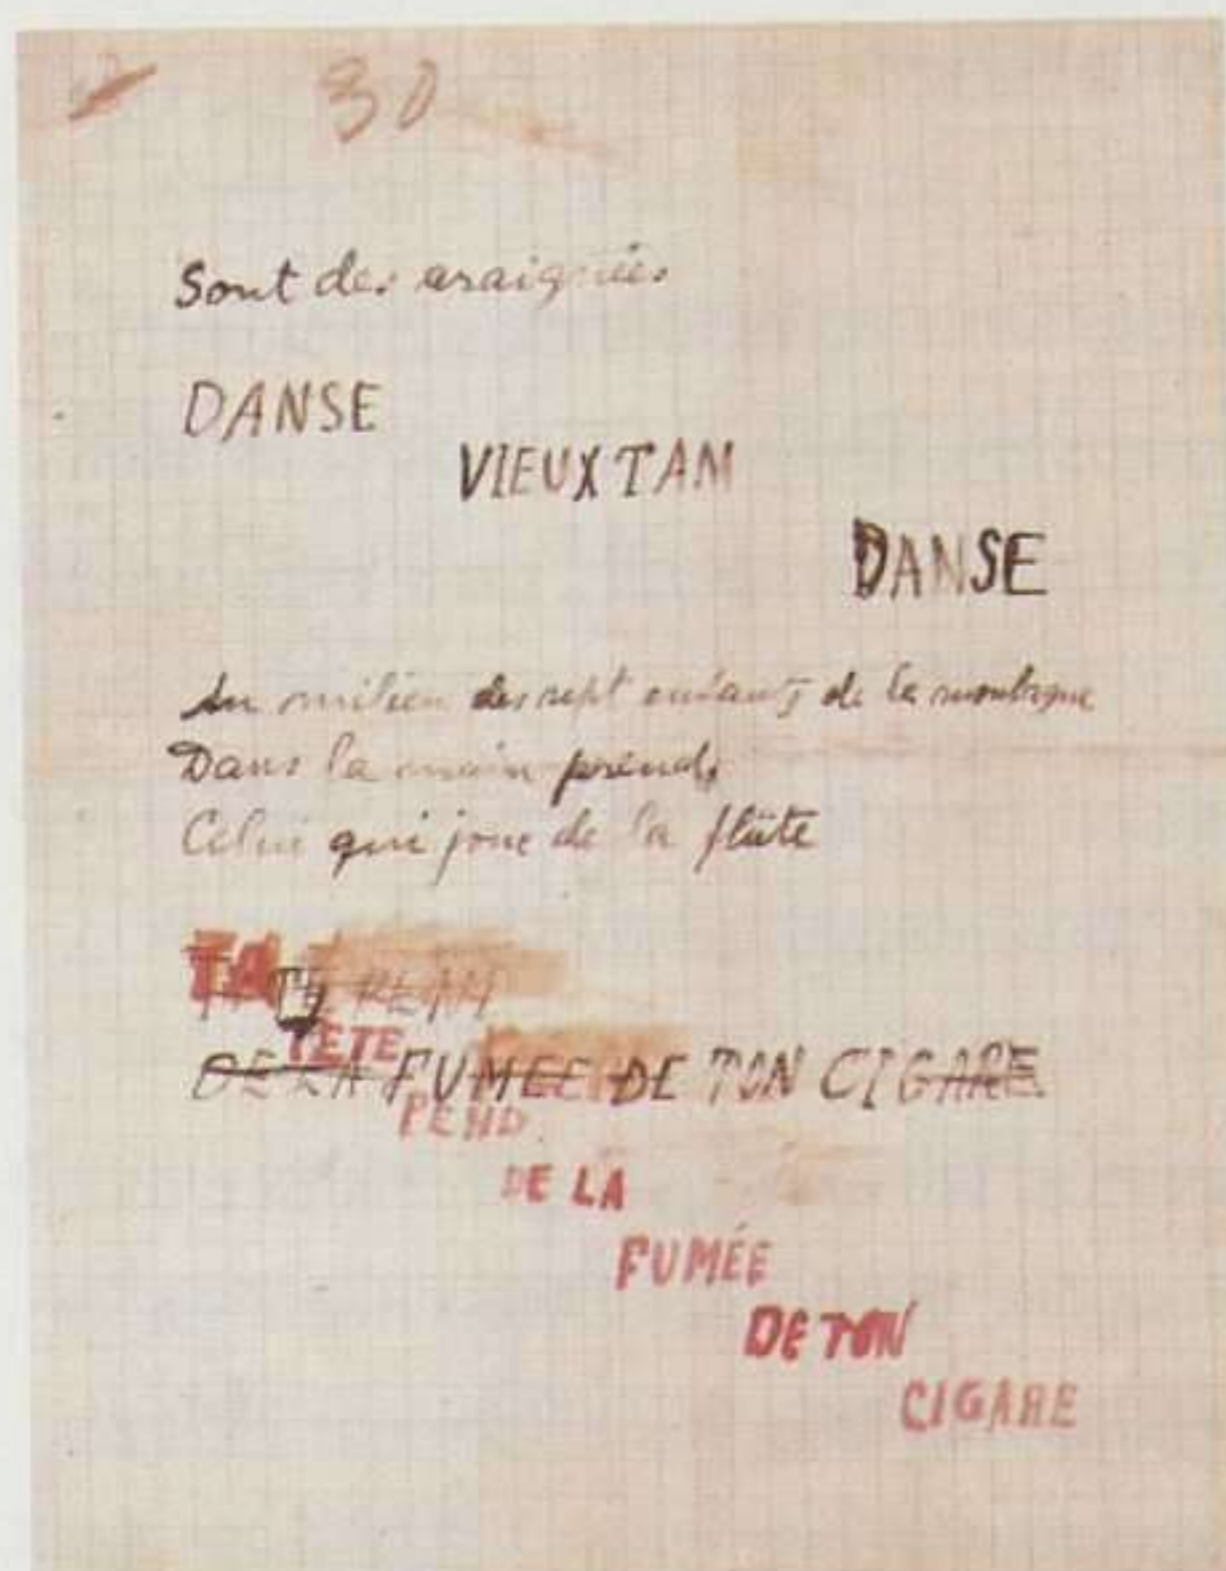 30
Sont des araignées
DANSE
VIEUX TAM
DANSE
Au milieu des sept enfants de la montagne
Dans la main prends
Celui qui joue de la flûte
TA
TÊTE
DE LA FUMEE DE TON CIGARE
PEND
DE LA
FUMÉE
DE TON
CIGARE